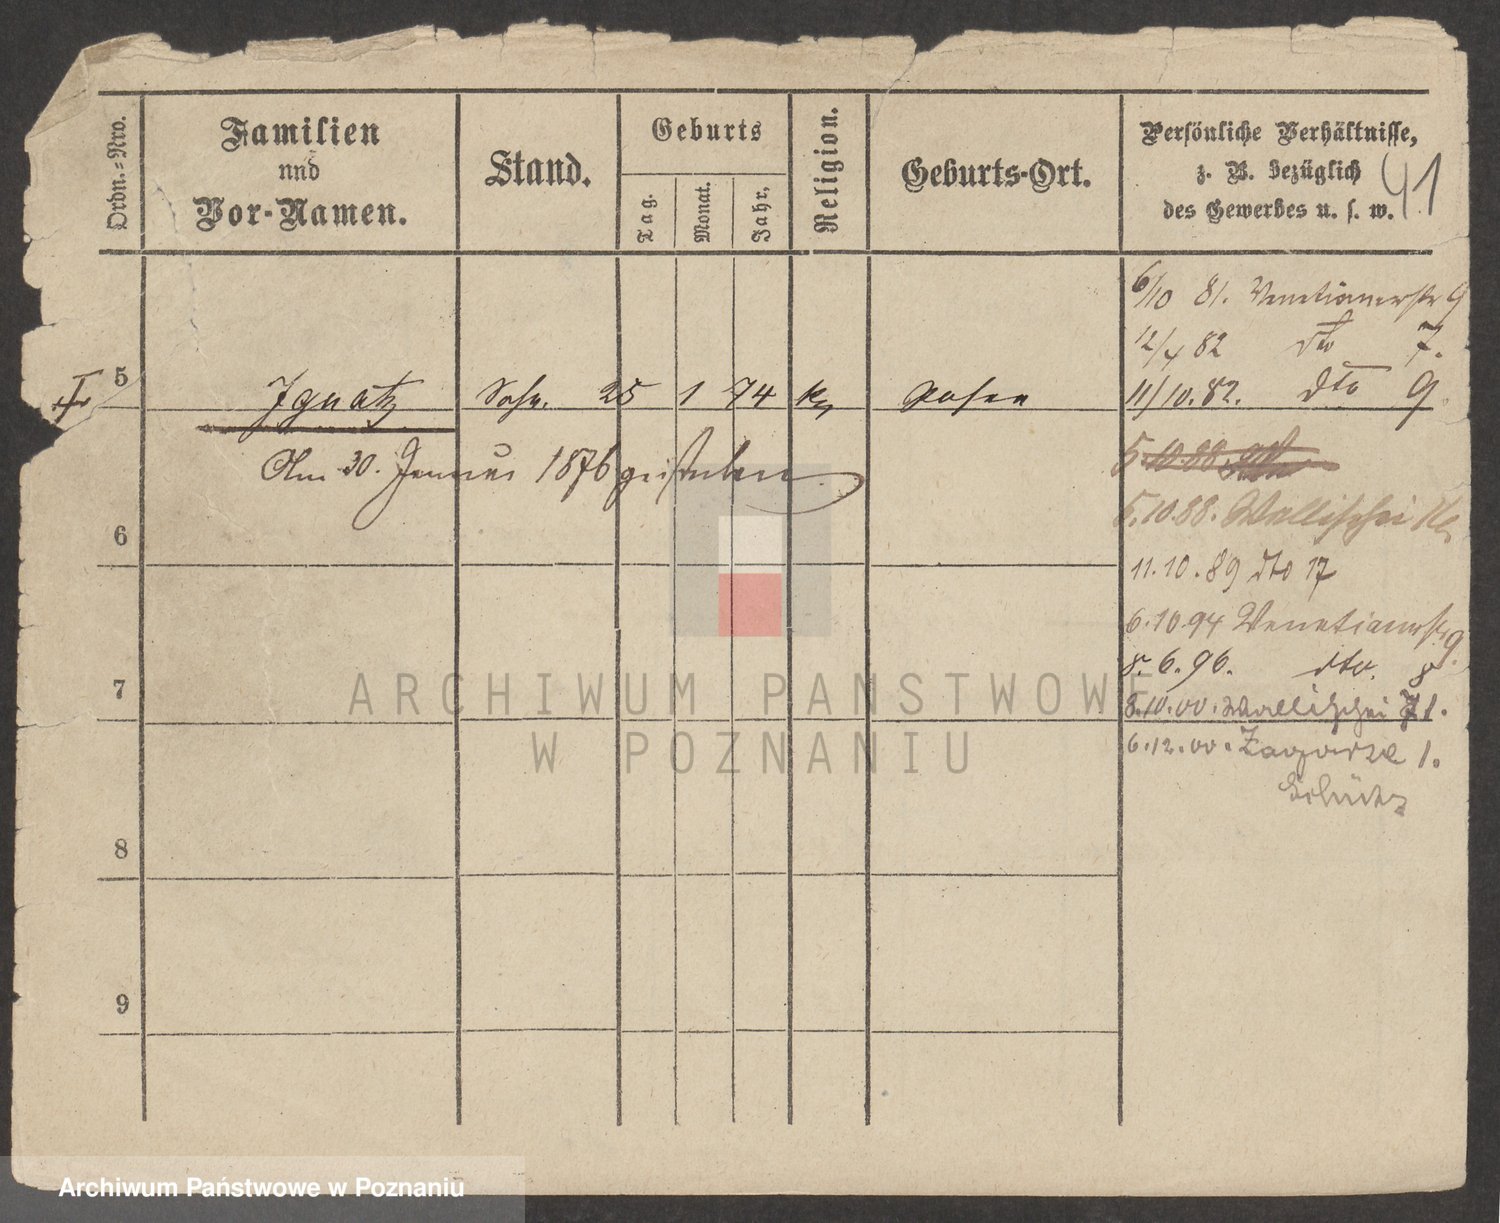 Ordn.-Nro.
Familien
und
Vor-Namen.
Stand.
Geburts
Tag.
Monat.
Jahr,
Religion.
Geburts-Ort.
Persönliche Verhältnisse,
z. B. bezüglich
des Gewerbes u. s. w.
41
6/10 81. Venetianerstr 9
12/4 82 dto 7.
11/10.82. dto 9.
5 Ignatz Sohn. 25 1 74 K. Posen
Am 30. Januar 1876 gestorben
5.10.88.
5.10.88. Wallischei
6
11.10.89 dto 17
6.10.94 Venetianerstr. 9.
8.6.96. dto. 8
7
8.10.00. Wallischei 71.
6.12.00. Zagorze 1.
8
9
ARCHIWUM PAŃSTWOWE
W POZNANIU
Archiwum Państwowe w Poznaniu